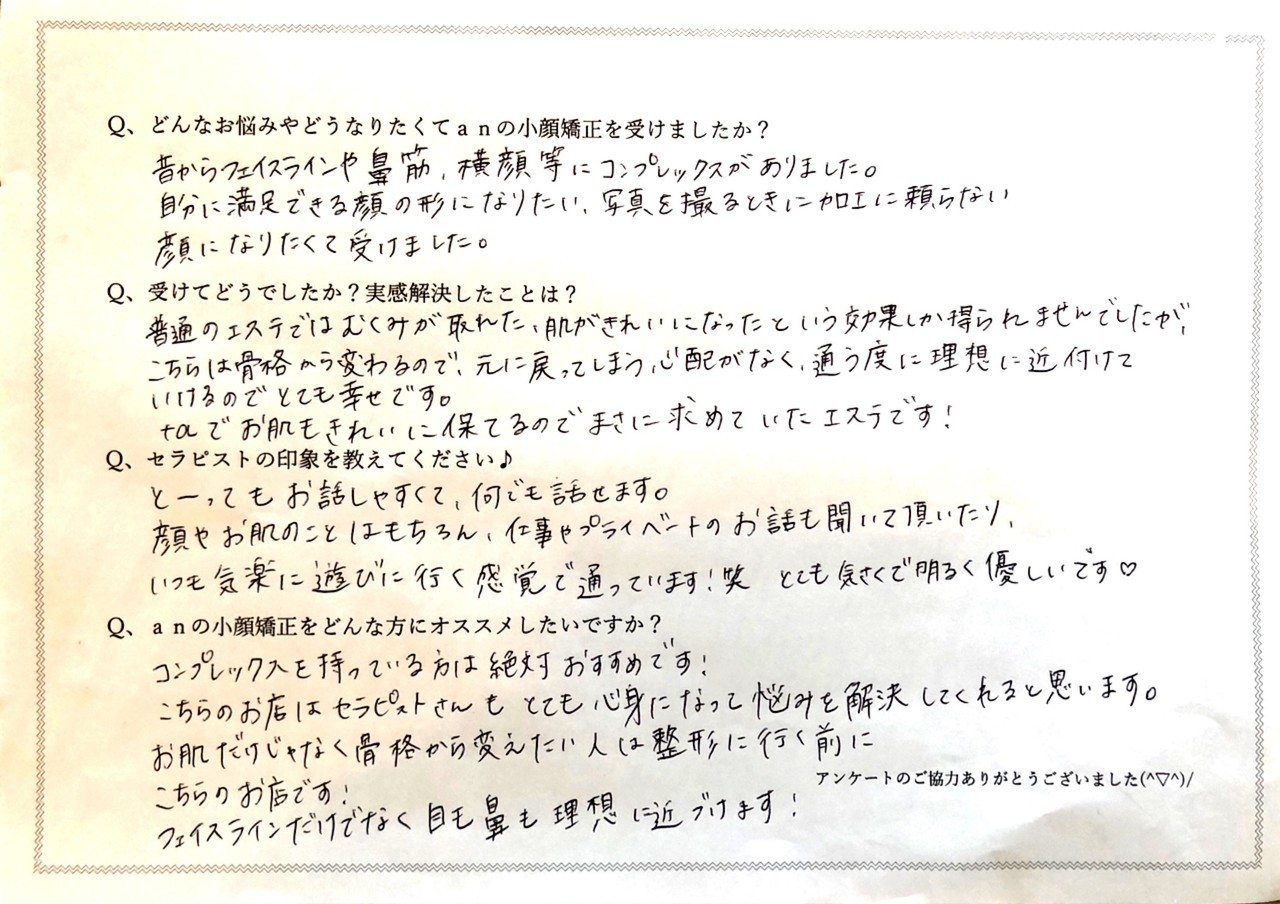 Q、どんなお悩みやどうなりたくてａｎの小顔矯正を受けましたか？
昔からフェイスラインや鼻筋、横顔等にコンプレックスがありました。
自分に満足できる顔の形になりたい、写真を撮るときに加工に頼らない
顔になりたくて受けました。
Q、受けてどうでしたか？実感解決したことは？
普通のエステではむくみが取れた、肌がきれいになったという効果しか得られませんでしたが、
こちらは骨格から変わるので、元に戻ってしまう心配がなく、通う度に理想に近付けて
いけるのでとても幸せです。
+αでお肌もきれいに保てるのでまさに求めていたエステです！
Q、セラピストの印象を教えてください♪
とーってもお話しやすくて、何でも話せます。
顔やお肌のことはもちろん、仕事やプライベートのお話も聞いて頂いたり、
いつも気楽に遊びに行く感覚で通っています！笑 とても気さくで明るく優しいです♡
Q、ａｎの小顔矯正をどんな方にオススメしたいですか？
コンプレックスを持っている方は絶対おすすめです！
こちらのお店はセラピストさんもとても心身になって悩みを解決してくれると思います。
お肌だけじゃなく骨格から変えたい人は整形に行く前に
こちらのお店です！
フェイスラインだけでなく目も鼻も理想に近づけます！
アンケートのご協力ありがとうございました(^▽^)/